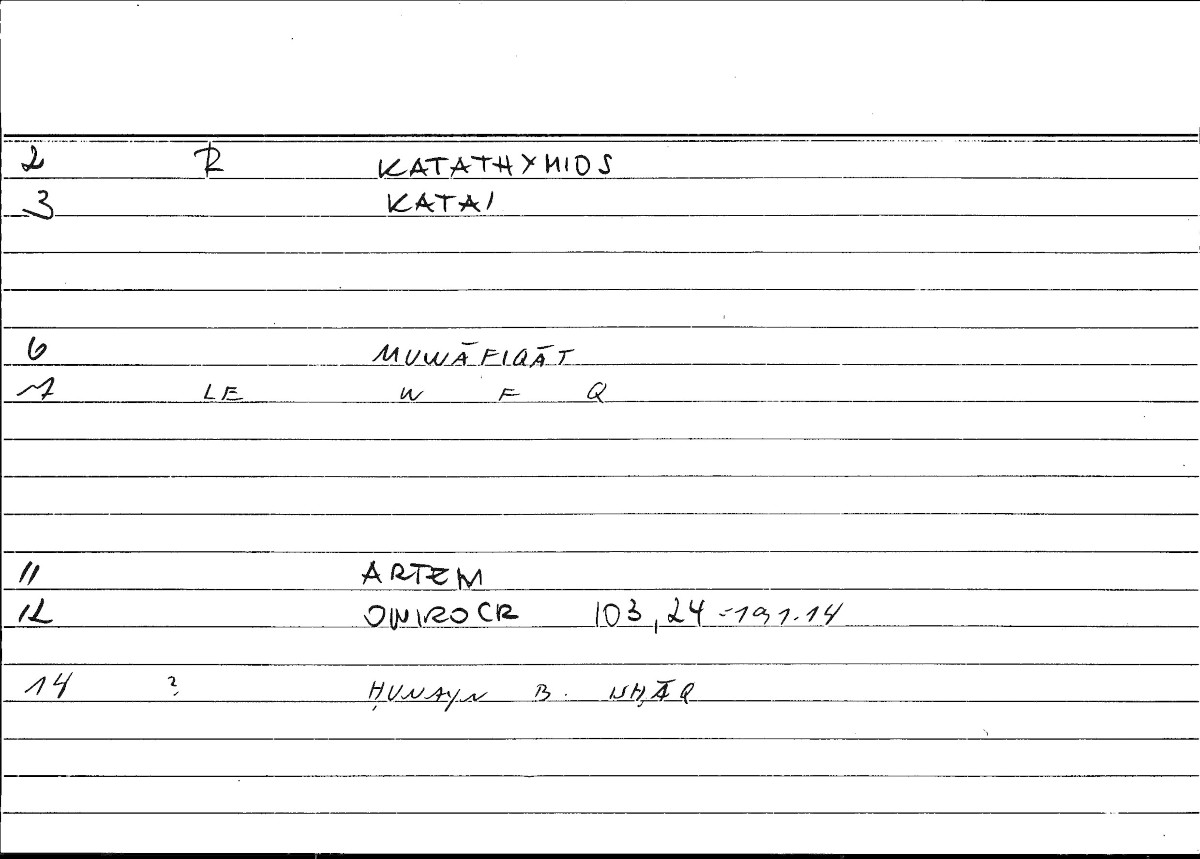 2 R KATATHYMIOS
3 KATAI
6 MUWĀFIQĀT
7 LE W F Q
11 ARTEM
12 ONIROCR 103,24 = 191.14
14 ? ḤUNAYN B. ISḤĀQ